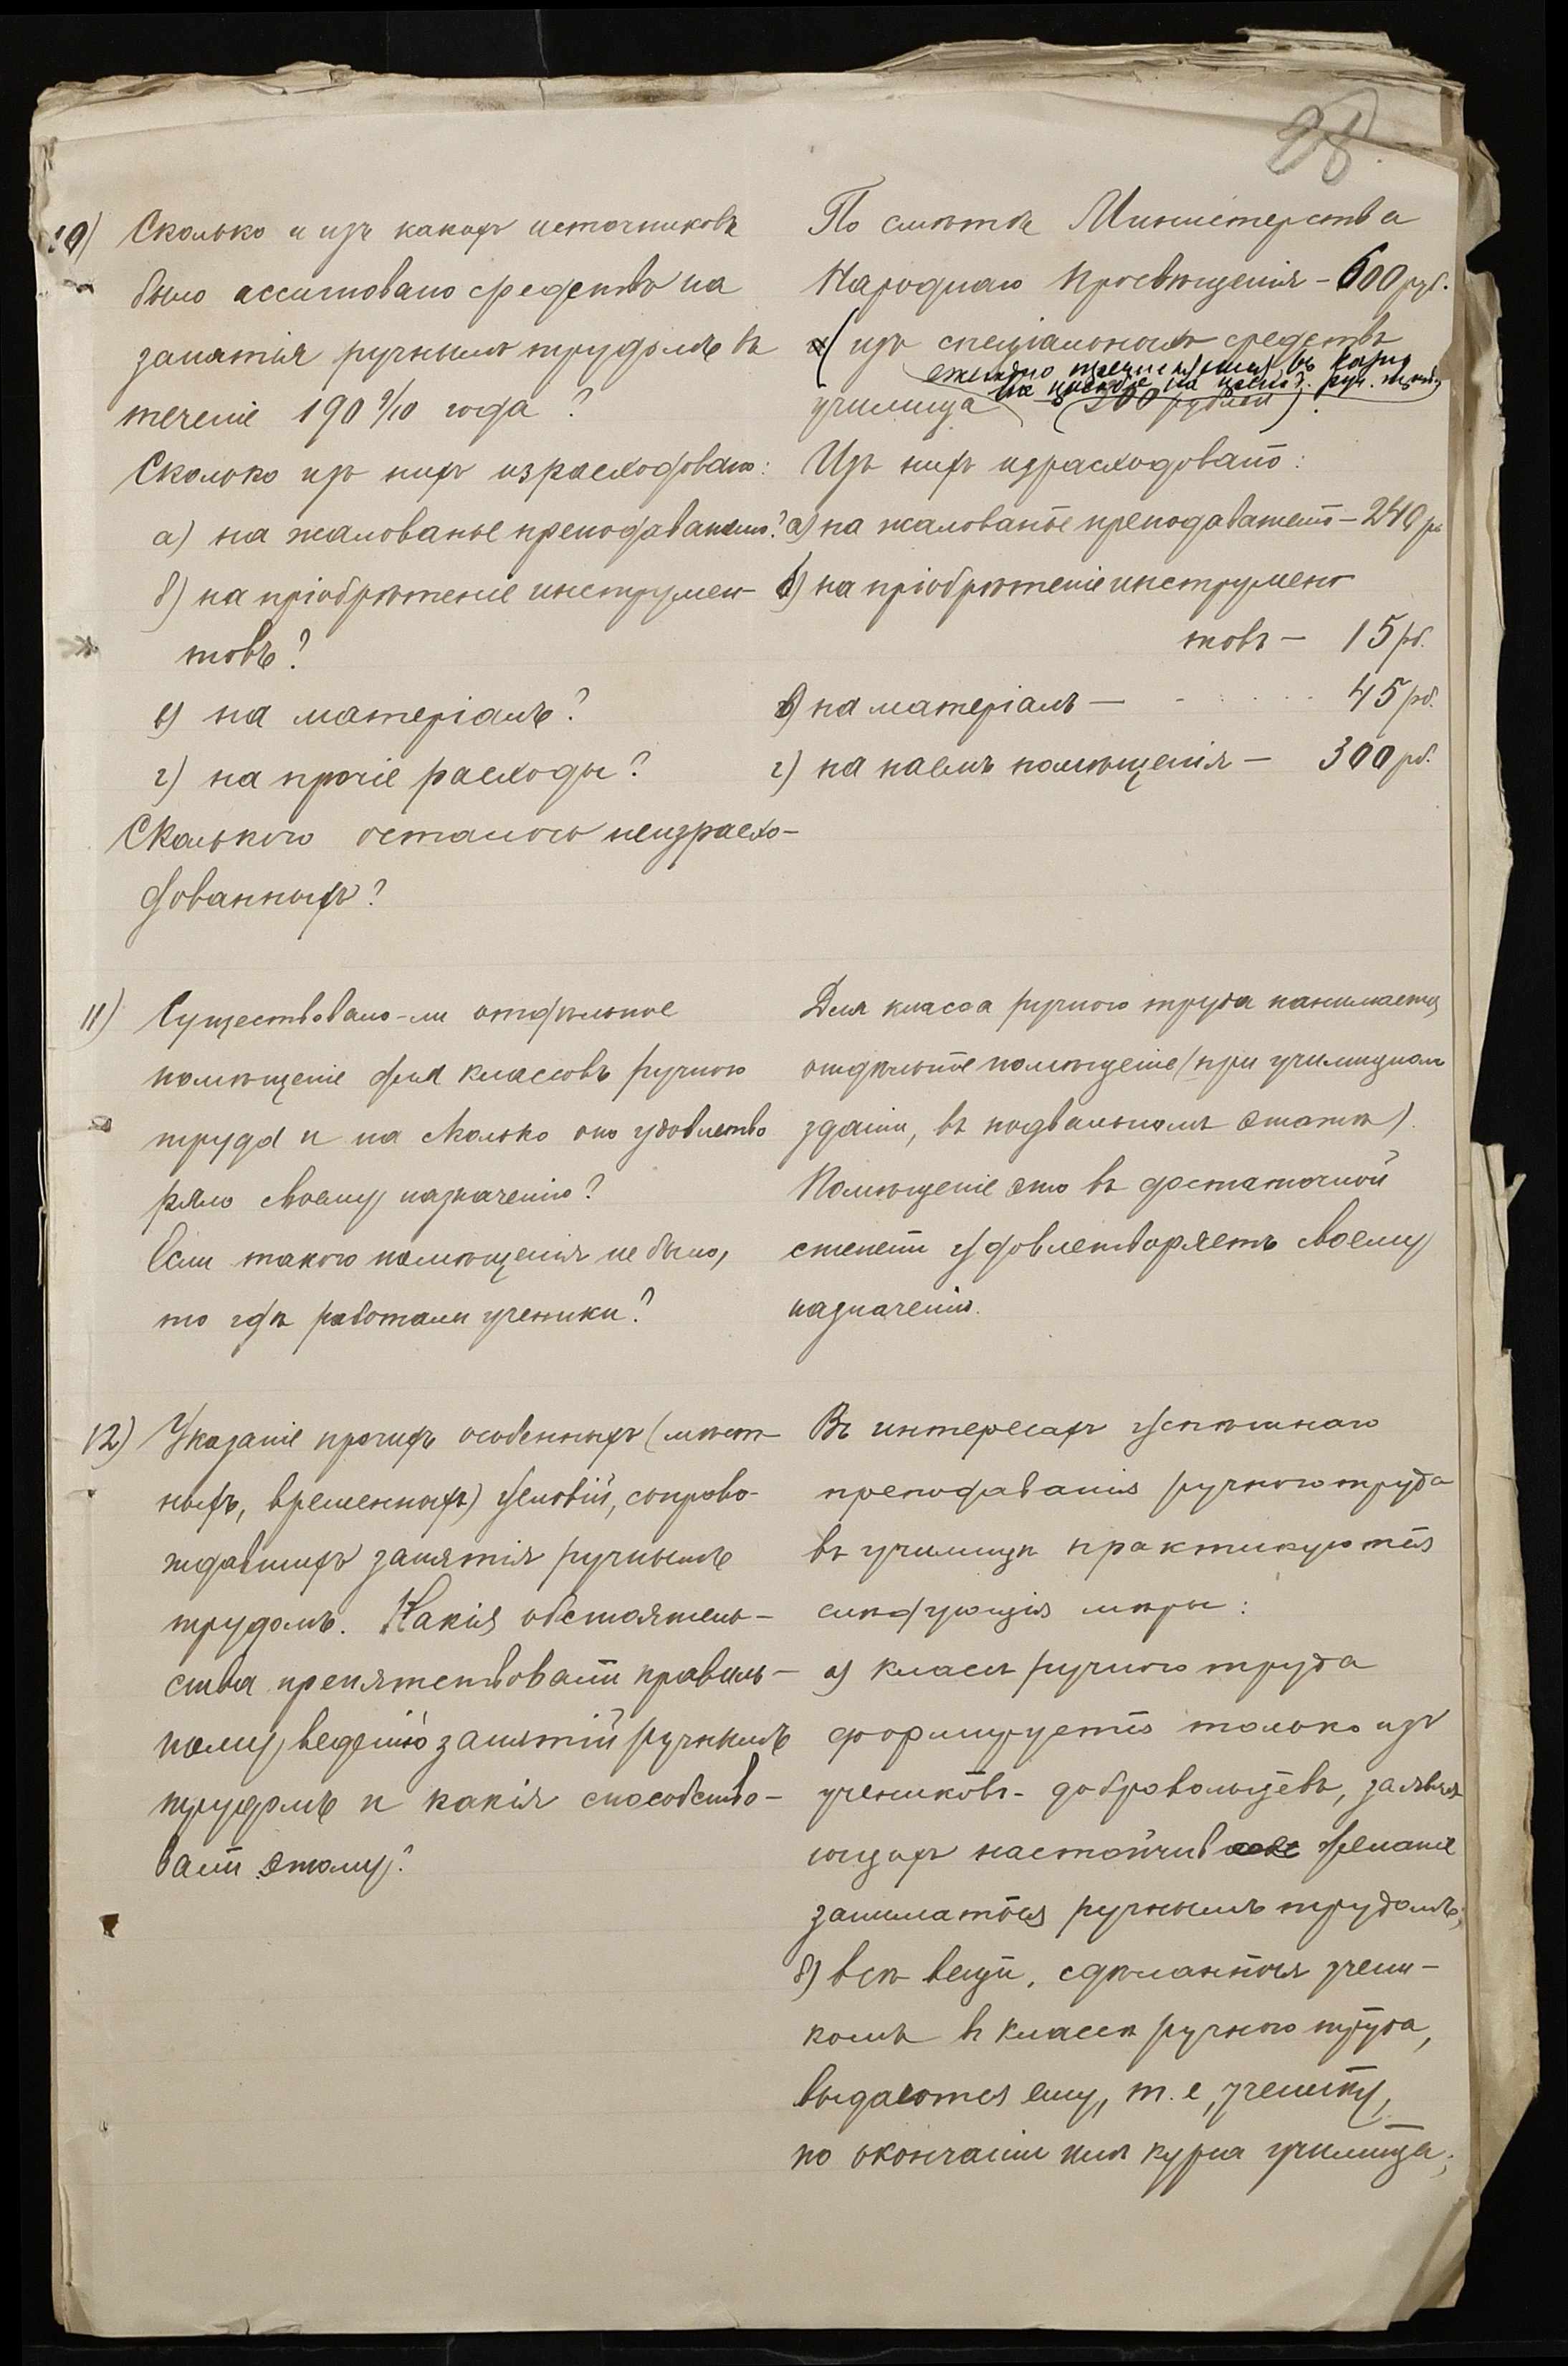 28
10) Сколько и изъ какихъ источниковъ
было ассигновано средствъ на
занятія ручнымъ трудомъ въ
теченіе 1909/10 года?
Сколько изъ нихъ израсходовано:
а) на жалованье преподавателю?
б) на пріобрѣтеніе инструмен-
товъ?
в) на матеріалъ?
г) на прочіе расходы?
Сколького осталось неизрасхо-
дованныхъ?
По смѣтѣ Министерства
Народнаго Просвѣщенія – 600 руб.
(изъ спеціальныхъ средствъ
ежегодно въ казну
на рук. труда
училища (200 рублей)
Изъ нихъ израсходовано:
а) на жалованье преподавателю – 240 р.
б) на пріобрѣтеніе инструмен
товъ – 15 рб.
в) на матеріалъ – 45 рб.
г) на наемъ помѣщенія – 300 рб.
11) Существовало-ли отдѣльное
помѣщеніе для классовъ ручного
труда и на сколько оно удовлетво
ряло своему назначенію?
Если такого помѣщенія не было,
то гдѣ работали ученики?
Для класса ручного труда нанимается
отдѣльное помѣщеніе (при училищномъ
зданіи, въ подвальномъ этажѣ).
Помѣщеніе это въ достаточной
степени удовлетворяетъ своему
назначенію.
12) Указаніе прочихъ особенныхъ (мѣст-
ныхъ, временныхъ) условій, сопрово-
ждавшихъ занятія ручнымъ
трудомъ. Какія обстоятель-
ства препятствовали правиль-
ному веденію занятій ручнымъ
трудомъ и какія способство-
вали этому?
Въ интересахъ успѣшнаго
преподаванія ручного труда
въ училищѣ практикуются
слѣдующія мѣры:
а) классъ ручного труда
формируется только изъ
учениковъ-добровольцевъ, заявля
ющихъ настойчив желаніе
заниматься ручнымъ трудомъ;
б) всѣ вещи, сдѣланныя учени-
комъ въ классѣ ручного труда,
выдаются ему, т.е, ученику,
по окончаніи имъ курса училища;